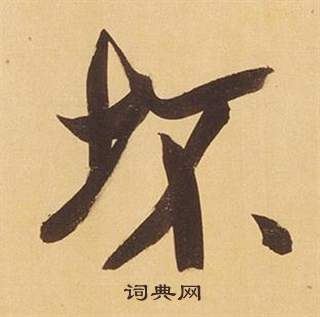 坏
词典网